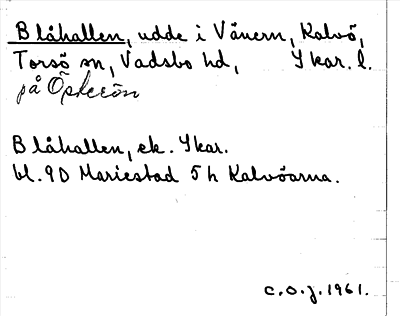 Blåhallen, udde i Vänern, Kalvö,
Torsö sn, Vadsbo hd, Skar. l.
på Öskerön
Blåhallen, ek. Skar.
bl. 90 Mariestad 5 h Kalvöarna.
C.O.J. 1961.